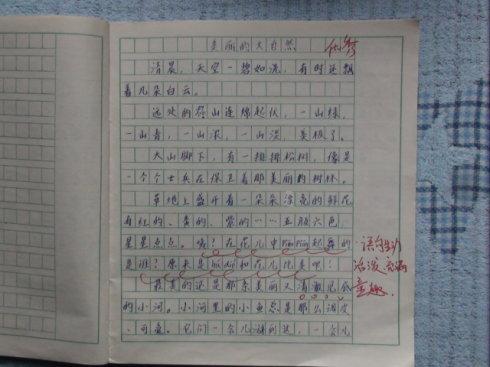 美丽的大自然
优
清晨，天空一碧如洗，有时还飘
着几朵白云。
远处的群山连绵起伏，一山绿，
一山青，一山浓，一山淡，美极了。
大山脚下，有一排排松树，像是
一个个士兵在保卫着那美丽的树林。
草地上盛开着一朵朵漂亮的鲜花，
有红的、黄的、紫的……五颜六色，
星星点点。咦？在花儿中piānpiān起舞的
是谁？原来是húdié和花儿比美呢！
最美的还是那条美丽又清澈见底
的小河。小河里的小鱼总是那么调皮
、可爱。它们一会儿游到这，一会儿
语句生动
活泼，充满
童趣。